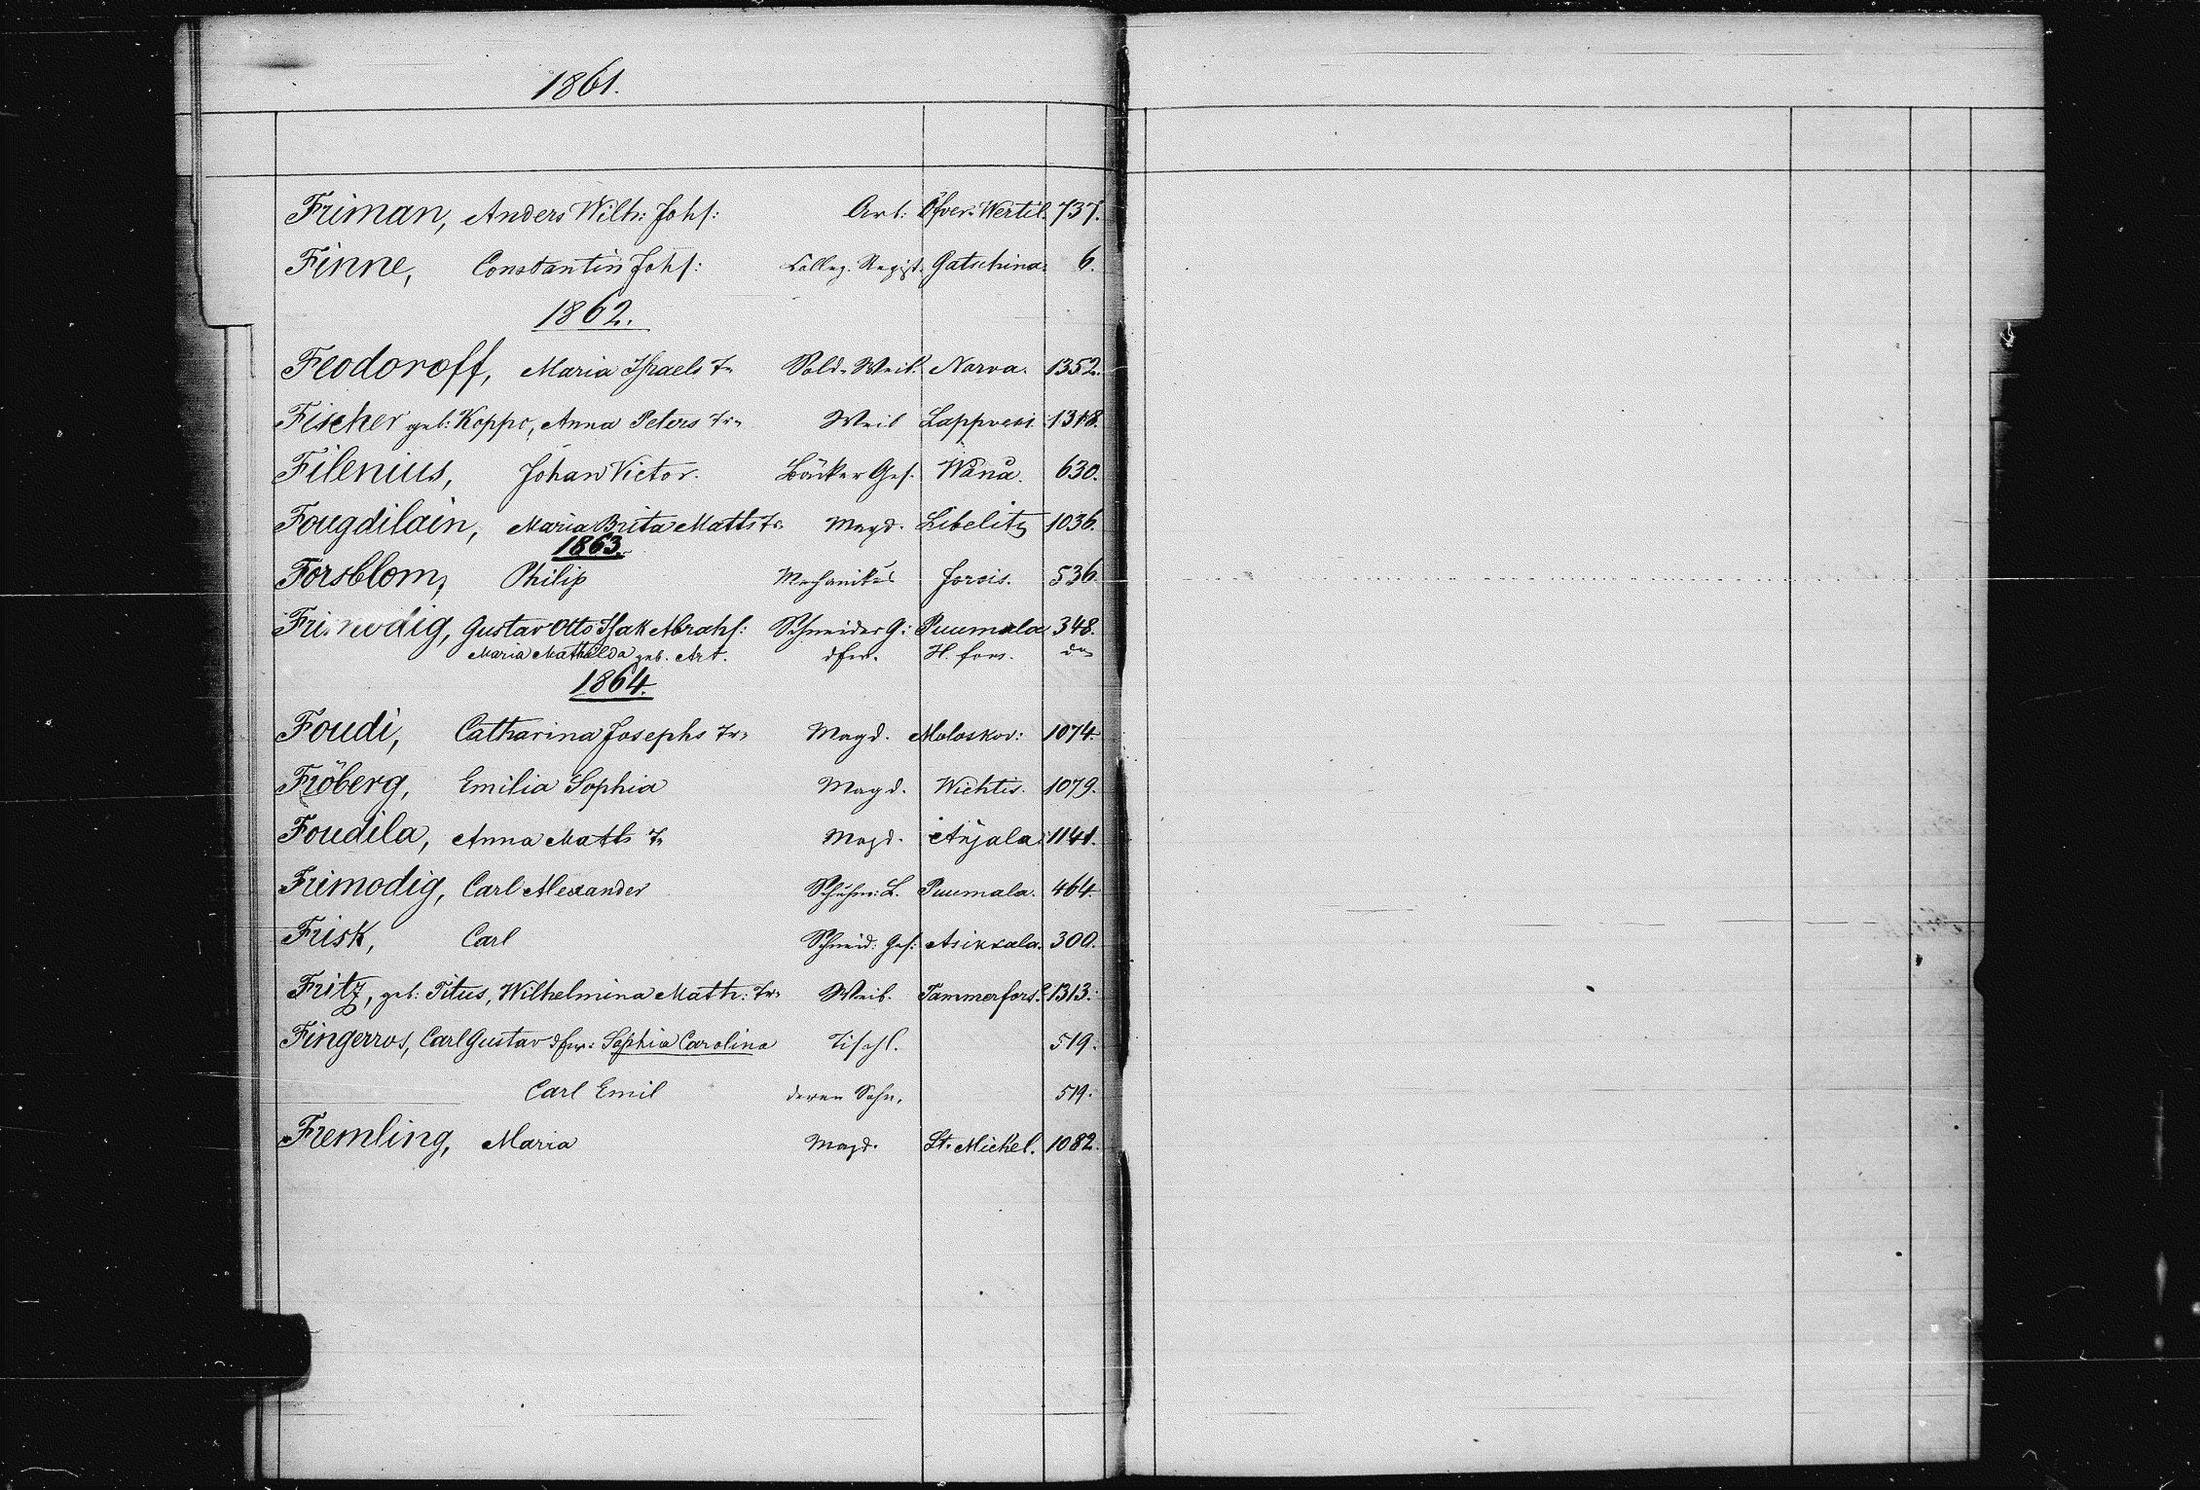 1861.
Friman, Anders Wilh: Johs: Arb: Öfver-Wertil. 737.
Finne, Constantin Johs: Colleg. Regist. Gatschina. 6.
1862.
Feodoroff, Maria Israels Tr Sold. Weib. Narva. 1352.
Fischer geb: Koppo, Anna Peters Tr Weib Lappvesi. 1318.
Filenius, Johan Victor. Bäcker Ges. Wånå. 630.
Fougdilain, Maria Brita Matts Tr Magd. Libelitz 1036.
1863.
Forsblom, Philip Mechanikus Jorois. 536.
Frimodig, Gustav Otto Isak Abrahs: Schneider G: Puumala 348.
Maria Mathilda geb. Art. dfr. H. fors. do
1864.
Foudi, Catharina Josephs Tr Magd. Moloskov: 1074.
Fröberg, Emilia Sophia Magd. Wichtis. 1079.
Foudila, Anna Matts Tr Magd. Anjala. 1141.
Frimodig, Carl Alexander Schuhm: L. Puumala. 464.
Frisk, Carl Schneid: Ges: Asikkala. 300.
Fritz, geb: Titus, Wilhelmina Math: Tr Weib. Tammerfors. 1313.
Fingerros, Carl Gustav dfr: Sophia Carolina Tischl. 519.
Carl Emil deren Sohn. 519.
Fremling, Maria Magd. St. Michel. 1082.